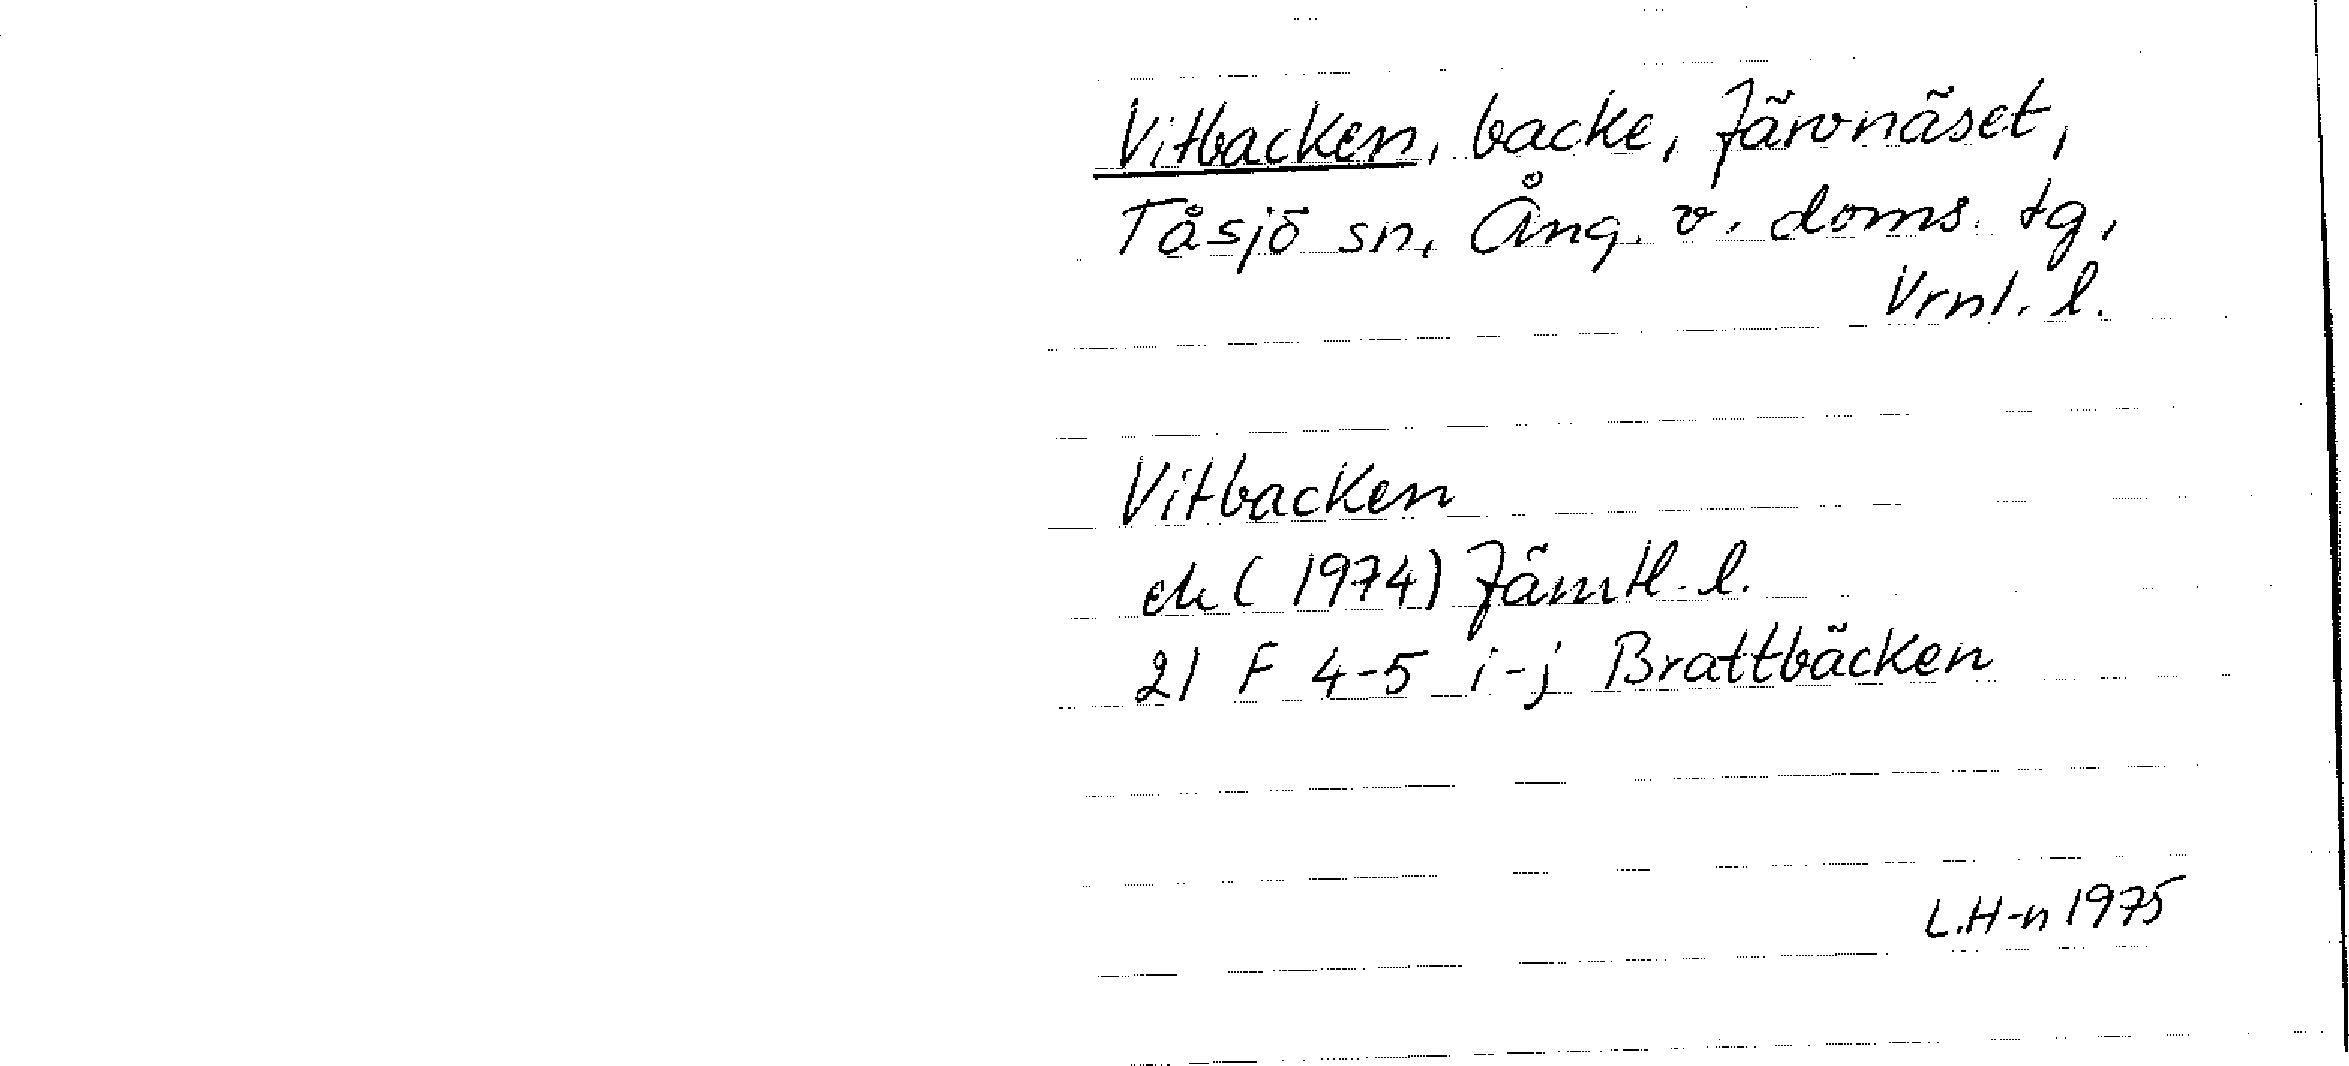 Vitbacken, backe, Järvnäset,
Tåsjö sn, Ång. v. doms. tg,
Vrnl. l.
Vitbacken
ek (1974) Jämtl. l.
21 F 4-5 i-j Brattbäcken
L.H-n 1975